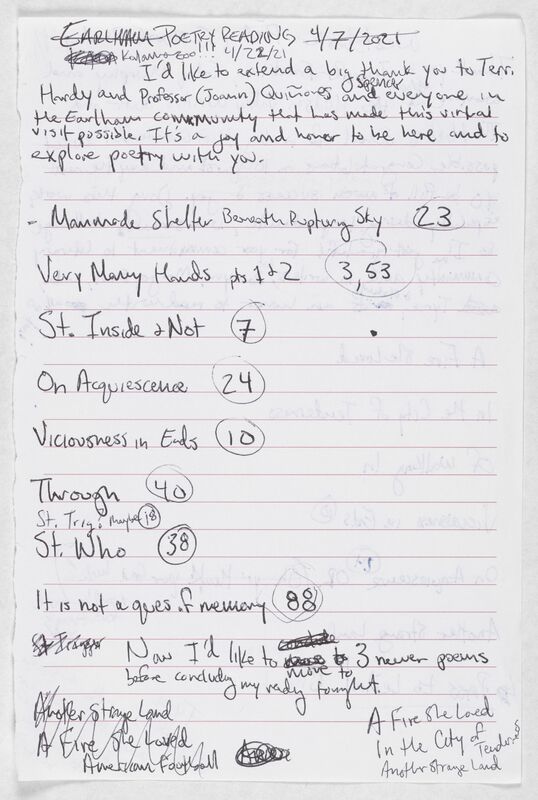 EARLHAM POETRY READING 4/7/2021
Kalamazoo!!! 4/22/21
I'd like to extend a big thank you to Terri
Spencer
Hardy and Professor (Joann) Quiñones and everyone in
the Earlham community that has made this virtual
visit possible. It's a joy and honor to be here and to
explore poetry with you.
- Manmade Shelter Beneath Rupturing Sky 23
Very Many Hands pts 1+2 3, 53
St. Inside & Not 7
On Acquiescence 24
Viciousness in Ends 10
Through 40
St. Trig: maybe 18
St. Who 38
It is not a ques. of memory 88
Now I'd like to move to 3 newer poems
before concluding my reading tonight.
Another Strange Land
A Fire She Loved
American Football
A Fire She Loved
In the City of Tenderness
Another Strange Land